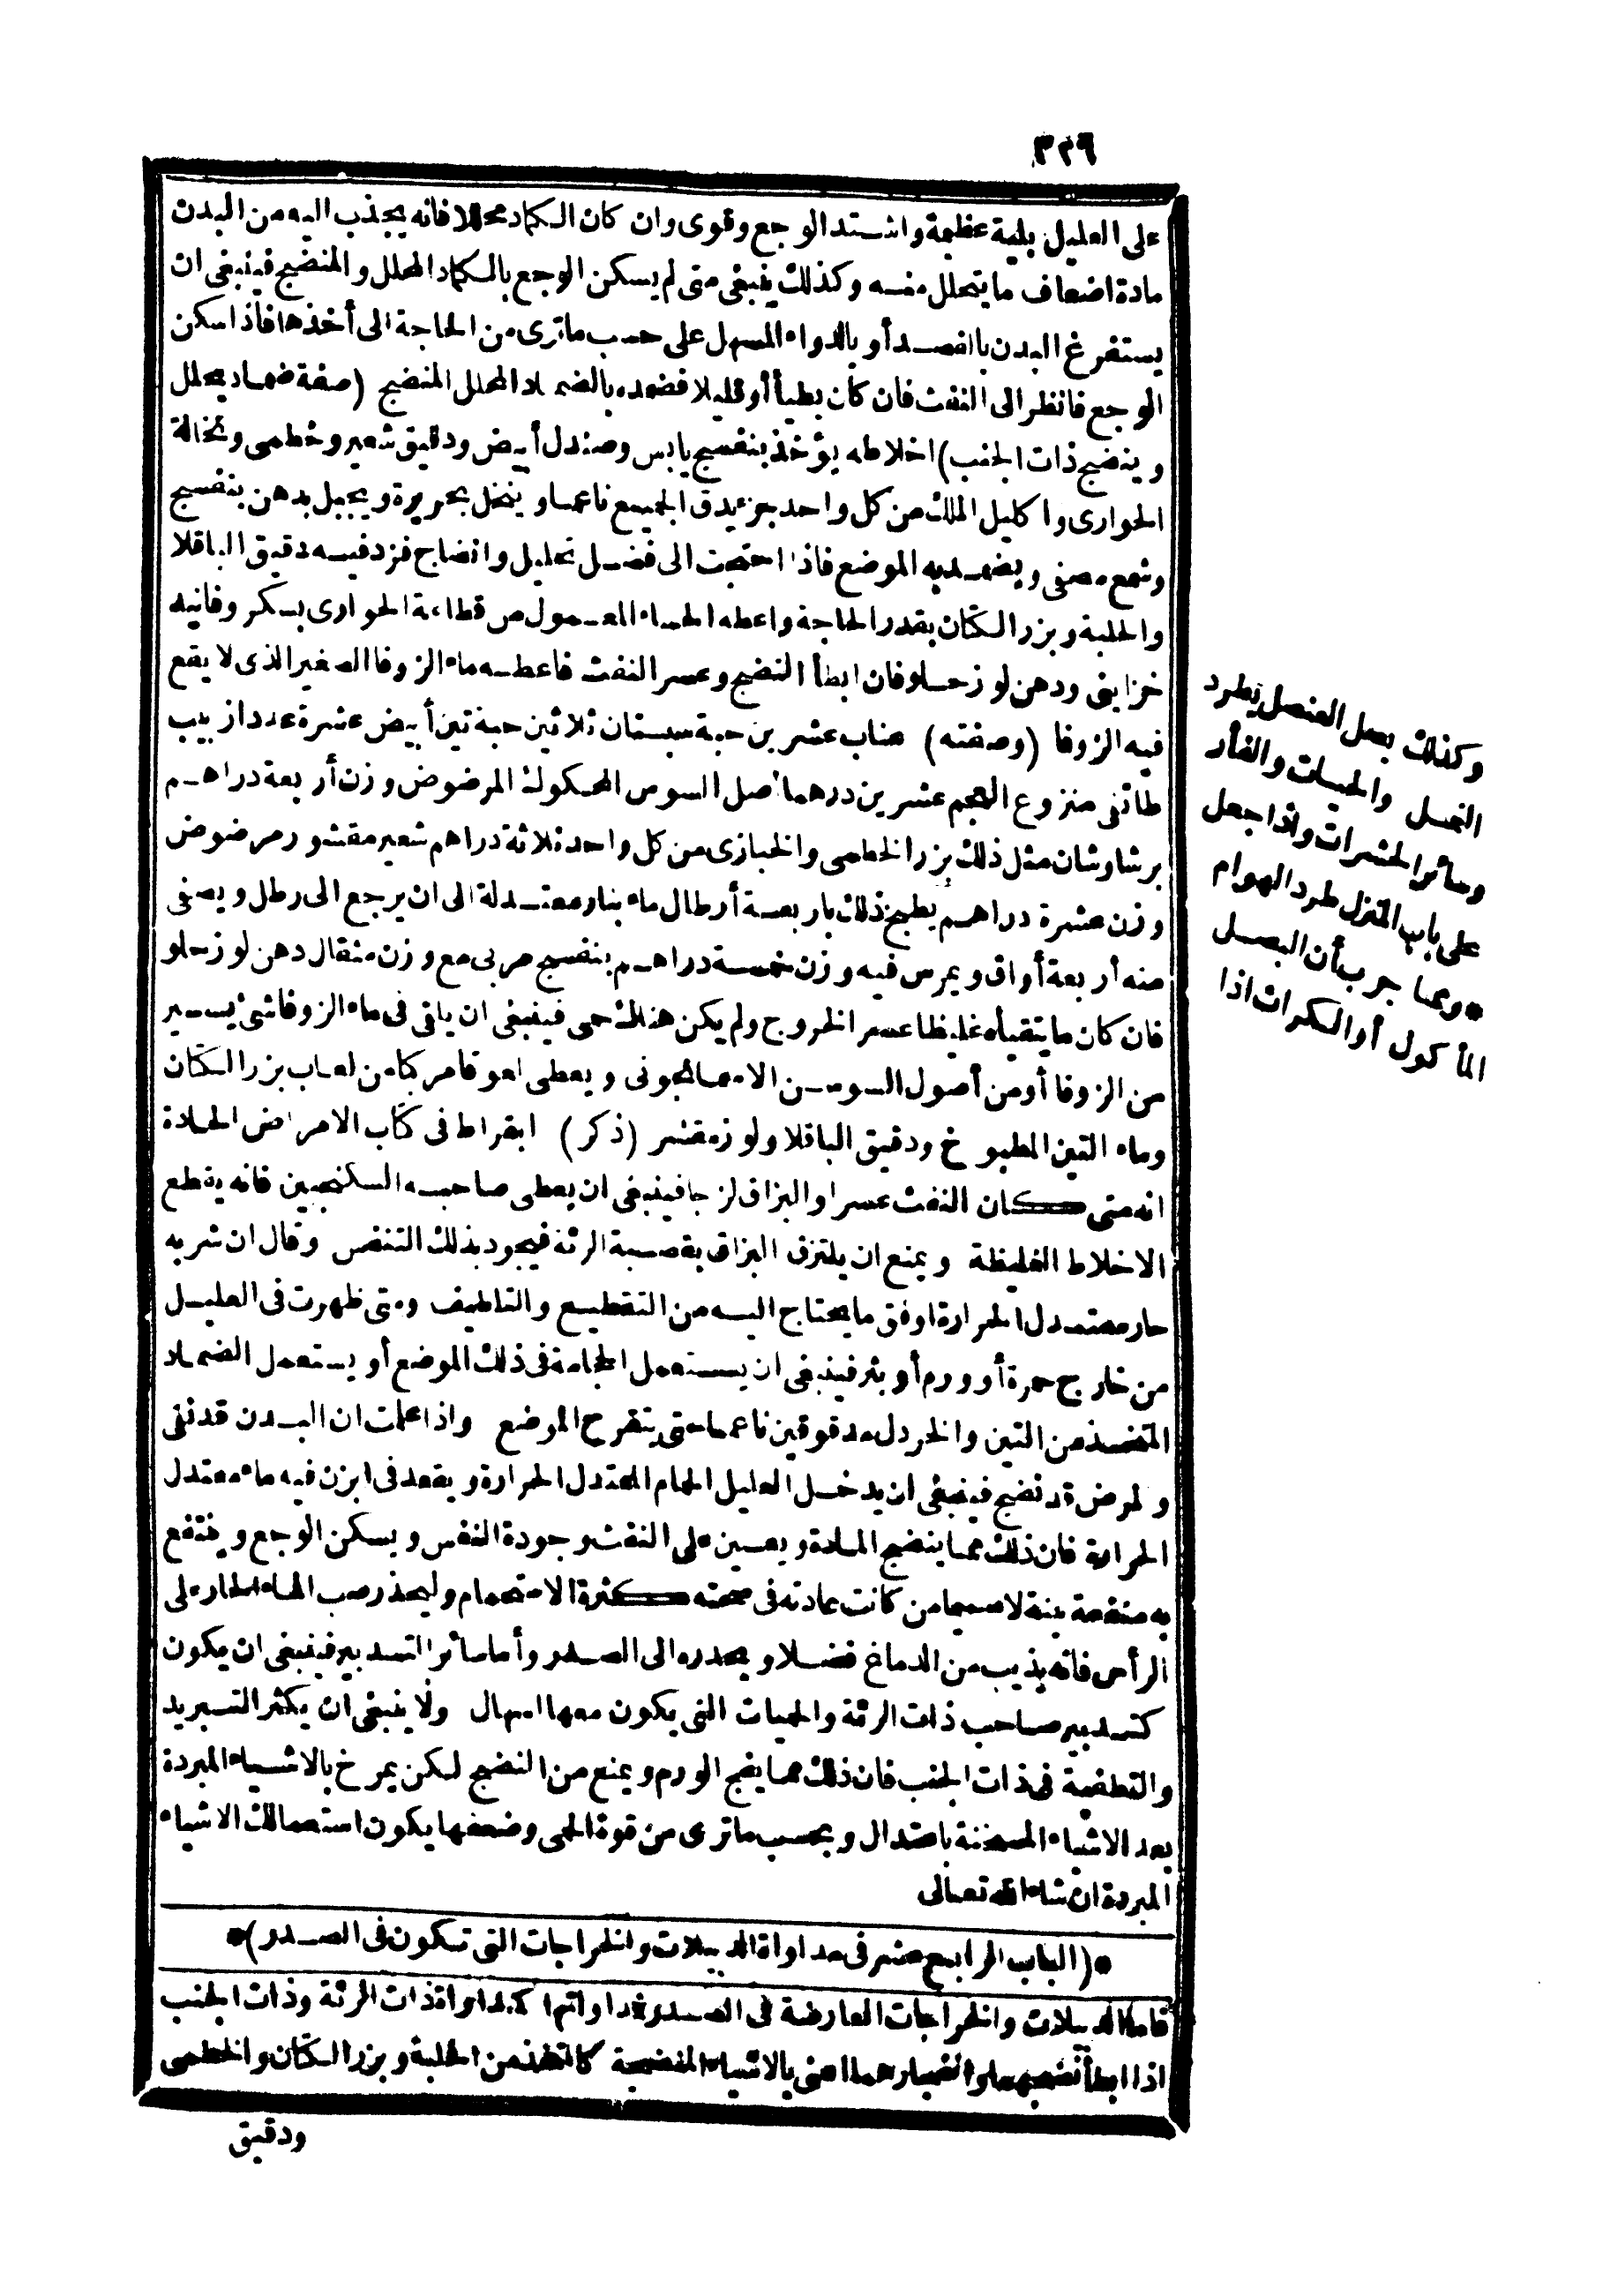 ٣٢٦
على العليل بلية عظيمة واشتد الوجع وقوى وان كان الكماد محللا فانه يجذب اليه من البدن
مادة اضعاف ما يتحلل منه وكذلك ينبغى متى لم يسكن الوجع بالكماد المحلل والمنضج فينبغى ان
يستفرغ البدن بالفصد أو بالدواء المسهل على حسب ما ترى من الحاجة الى أخذها فاذا سكن
الوجع فانظر الى النفث فان كان بطيأ أو قليلا فضمده بالضماد المحلل المنضج (صفة ضماد يحلل
وينضج ذات الجنب) اخلاطه يؤخذ بنفسج يابس وصندل أبيض ودقيق شعير وخطمى ونخالة
الحوارى واكليل الملك من كل واحد جزء يدق الجميع ناعما وينخل بحريرة ويجبل بدهن بنفسج
وشمع مصفى ويضمد به الموضع فاذا احتجت الى فضل تحليل وانضاج فزد فيه دقيق الباقلا
والحلبة وبزر الكتان بقدر الحاجة واعطه الحساء المعمول من قطاعة الحوارى بسكر وفانيد
خزاينى ودهن لوز حلو فان ابطأ النضج وعسر النفث فاعطه ماء الزوفا الصغير الذى لا يقع
فيه الزوفا (وصفته) عناب عشرين حبة سبستان ثلاثين حبة تين أبيض عشرة عددا زبيب
طائفى منزوع العجم عشرين درهما أصل السوس المحكوك المرضوض وزن أربعة دراهم
برشاوشان مثل ذلك بزر الخطمى والخبازى من كل واحد ثلاثة دراهم شعير مقشور مرضوض
وزن عشرة دراهم يطبخ ذلك باربعة أرطال ماء بنار معتدلة الى ان يرجع الى رطل ويصفى
منه أربعة أواق ويمرس فيه وزن خمسة دراهم بنفسج مربى مع وزن مثقال دهن لوز حلو
فان كان ما يتقيأه غليظا عسر الخروج ولم يكن هناك حمى فينبغى ان يلقى فى ماء الزوفا شئ يسير
من الزوفا أو من أصول السوسن الاسمانجونى ويعطى لعوقا مركبا من لعاب بزر الكتان
وماء التين المطبوخ ودقيق الباقلا ولوز مقشر (ذكر) ابقراط فى كتاب الامراض الحادة
انه متى كان النفث عسرا والبزاق لزجا فينبغى ان يعطى صاحبه السكنجبين فانه يقطع
الاخلاط الغليظة ويمنع ان يلتزق البزاق بقصبة الرئة فيجود بذلك التنفس وقال ان شربه
حار معتدل الحرارة اوفق ما يحتاج اليه من التقطيع والتلطيف ومتى ظهرت فى العليل
من خارج حمرة أو ورم أو بثر فينبغى ان يستعمل الحجامة فى ذلك الموضع أو يستعمل الضماد
المتخذ من التين والخردل مدقوقين ناعما حتى يتقرح الموضع واذا علمت ان البدن قد نقى
والمرض قد نضج فينبغى ان يدخل العليل الحمام المعتدل الحرارة ويقعد فى ابزن فيه ماء معتدل
الحرارة فان ذلك مما ينضج المادة ويعين على النفث وجودة النفس ويسكن الوجع وينتفع
به منفعة بينة لا سيما من كانت عادته فى صحته كثرة الاستحمام وليحذر صب الماء الحار على
الرأس فانه يذيب من الدماغ فضلا ويحدره الى الصدر وأما سائر التدبير فينبغى ان يكون
كتدبير صاحب ذات الرئة والحميات التى يكون معها اسهال ولا ينبغى ان يكثر التبريد
والتطفية فى ذات الجنب فان ذلك مما يفج الورم ويمنع من النضج لكن يمرخ بالاشياء المبردة
بعد الاشياء المسخنة باعتدال وبحسب ما ترى من قوة الحمى وضعفها يكون استعمالك الاشياء
المبردة ان شاء الله تعالى
*(الباب الرابع عشر فى مداواة الدبيلات والخراجات التى تكون فى الصدر)*
فاما الدبيلات والخراجات العارضة فى الصدر فمداواتها كمداواة ذات الرئة وذات الجنب
اذا ابطأ نضجهما وانفجارهما اعنى بالاشياء المنضجة كالمتخذ من الحلبة وبزر الكتان والخطمى
ودقيق
وكذلك بصل العنصل يطرد
النمل والحيات والفأر
وسائر الحشرات واذا جعل
على باب المنزل طرد الهوام
*ومما جرب أن البصل
المأكول أو الكراث اذا